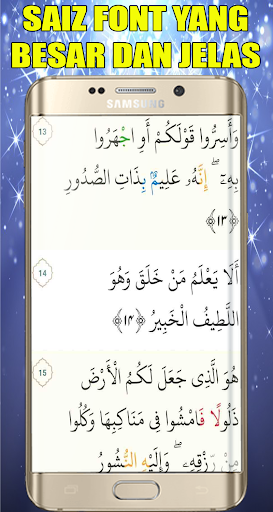 SAIZ FONT YANG
BESAR DAN JELAS
SAMSUNG
13
وَأَسِرُّوا قَوْلَكُمْ أَوِ اجْهَرُوا
بِهِۦٓ ۖ إِنَّهُۥ عَلِيمٌۢ بِذَاتِ الصُّدُورِ
﴿١٣﴾
14
أَلَا يَعْلَمُ مَنْ خَلَقَ وَهُوَ
اللَّطِيفُ الْخَبِيرُ ﴿١٤﴾
15
هُوَ الَّذِى جَعَلَ لَكُمُ الْأَرْضَ
ذَلُولًا فَامْشُوا فِى مَنَاكِبِهَا وَكُلُوا
مِنْ رِّزْقِهِۦ ۖ وَإِلَيْهِ النُّشُورُ